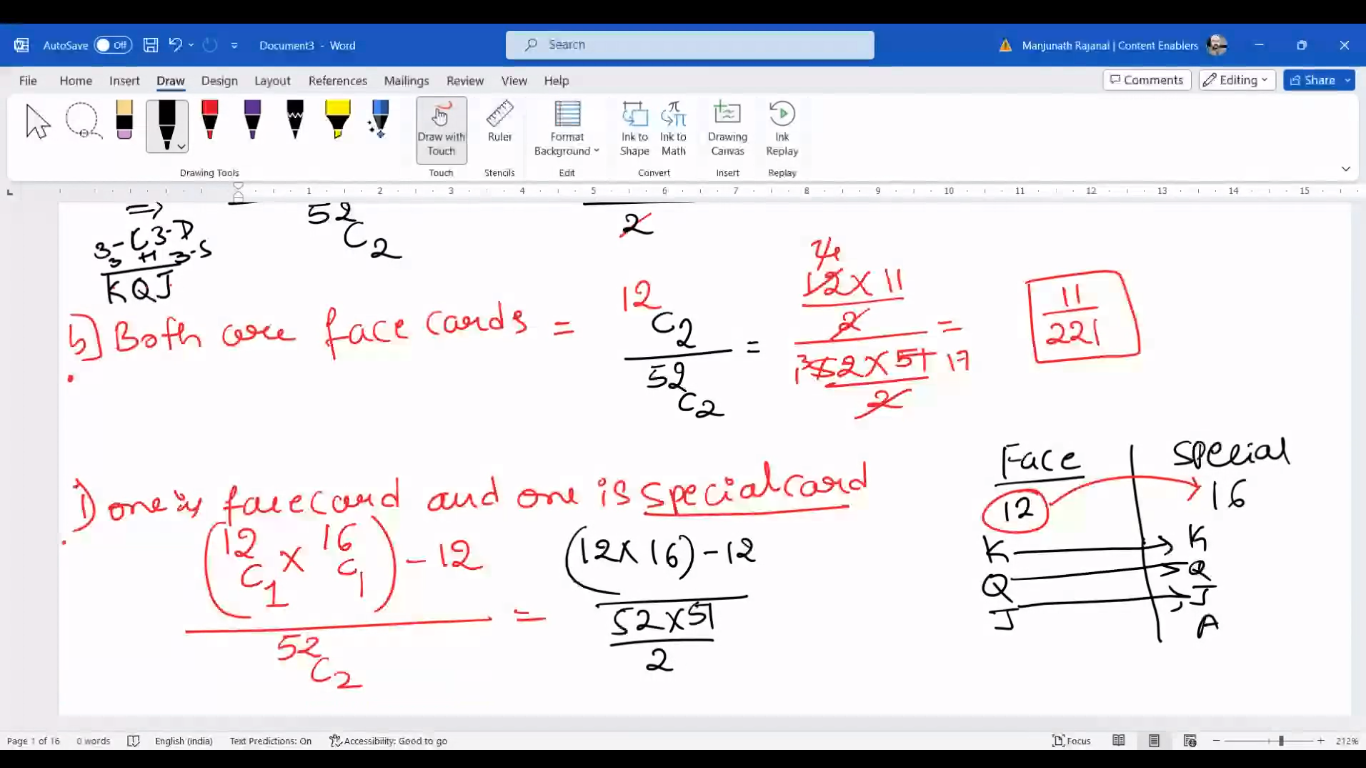 AutoSave Off Document3 - Word Search Manjunath Rajanal | Content Enablers
File Home Insert Draw Design Layout References Mailings Review View Help Comments Editing Share
Draw with Touch Ruler Format Background Ink to Shape Ink to Math Drawing Canvas Ink Replay
Drawing Tools Touch Stencils Edit Convert Insert Replay
1 2 3 4 5 6 7 8 9 10 11 12 13 14 15
=> 52C2 2
3-C 3-D
3-H 3-S
KQJ
b] Both are face cards = 12C2 / 52C2 = 12 x 11 / 2 / 52 x 51 / 2 = 11/221
13 17
Face | Special
12 16
K K
Q Q
J J
A
1) one is face card and one is special card
(12C1 x 16C1) - 12 / 52C2 = (12 x 16) - 12 / 52 x 51 / 2
Page 1 of 16 0 words English (India) Text Predictions: On Accessibility: Good to go Focus 212%